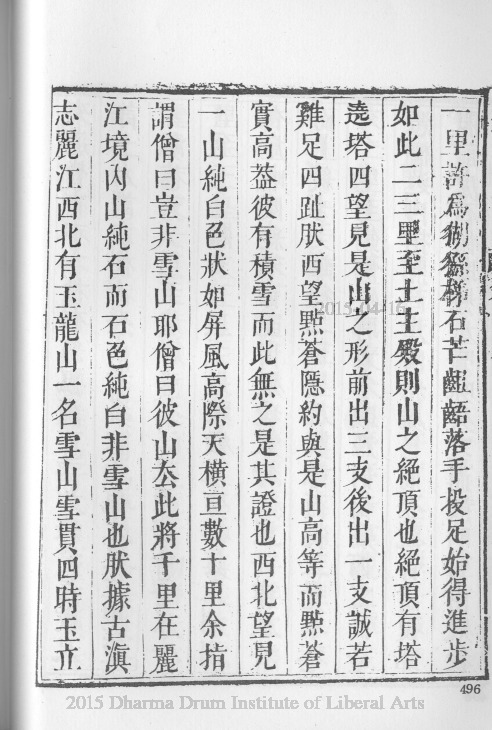 一里許為猢猻梯石芒齟齬落手投足始得進步
如此二三里至土主殿則山之絕頂也絕頂有塔
遶塔四望見是山之形前出三支後出一支誠若
雞足四趾肰西望㸃蒼隱約與是山高等而㸃蒼
實高葢彼有積雪而此無之是其證也西北望見
一山純白色狀如屏風高際天橫亘數十里余指
謂僧曰豈非雪山耶僧曰彼山去此將千里在麗
江境內山純石而石色純白非雪山也肰據古滇
志麗江西北有玉龍山一名雪山雪貫四時玉立
496
2015-04-16
2015 Dharma Drum Institute of Liberal Arts